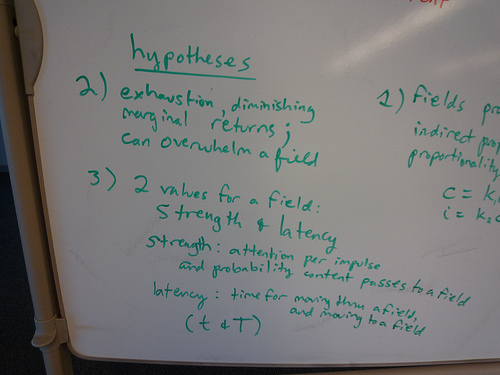 hypotheses
2) exhaustion, diminishing
marginal returns;
can overwhelm a field
3) 2 values for a field:
strength & latency
strength: attention per impulse
and probability content passes to a field
latency: time for moving thru a field,
and moving to a field
(t & T)
1) fields
indirect
proportionality
c = k
i = k₂